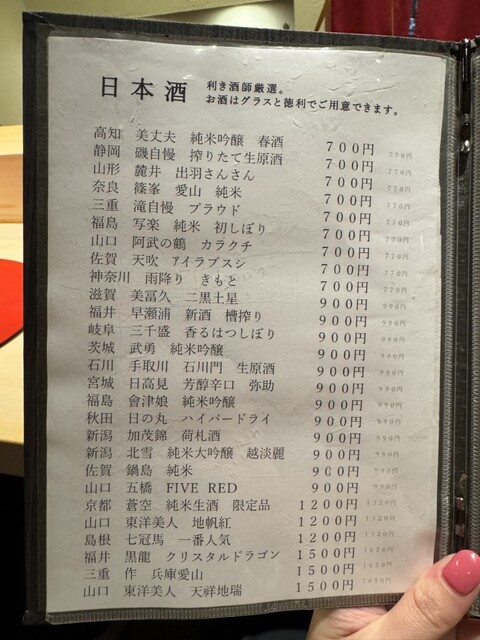 日本酒
利き酒師厳選。
お酒はグラスと徳利でご用意できます。
高知 美丈夫 純米吟醸 春酒 700円 770円
静岡 磯自慢 搾りたて生原酒 700円 770円
山形 麓井 出羽さんさん 700円 770円
奈良 篠峯 愛山 純米 700円 770円
三重 滝自慢 プラウド 700円 770円
福島 写楽 純米 初しぼり 700円 770円
山口 阿武の鶴 カラクチ 700円 770円
佐賀 天吹 アイラブスシ 700円 770円
神奈川 雨降り きもと 700円 770円
滋賀 美冨久 二黒土星 900円 990円
福井 早瀬浦 新酒 槽搾り 900円 990円
岐阜 三千盛 香るはつしぼり 900円 990円
茨城 武勇 純米吟醸 900円 990円
石川 手取川 石川門 生原酒 900円 990円
宮城 日高見 芳醇辛口 弥助 900円 990円
福島 會津娘 純米吟醸 900円 990円
秋田 日の丸 ハイパードライ 900円 990円
新潟 加茂錦 荷札酒 900円 990円
新潟 北雪 純米大吟醸 越淡麗 900円 990円
佐賀 鍋島 純米 900円 990円
山口 五橋 FIVE RED 900円 990円
京都 蒼空 純米生酒 限定品 1200円 1320円
山口 東洋美人 地帆紅 1200円 1320円
島根 七冠馬 一番人気 1200円 1320円
福井 黒龍 クリスタルドラゴン 1500円 1650円
三重 作 兵庫愛山 1500円 1650円
山口 東洋美人 天祥地瑞 1500円 1650円